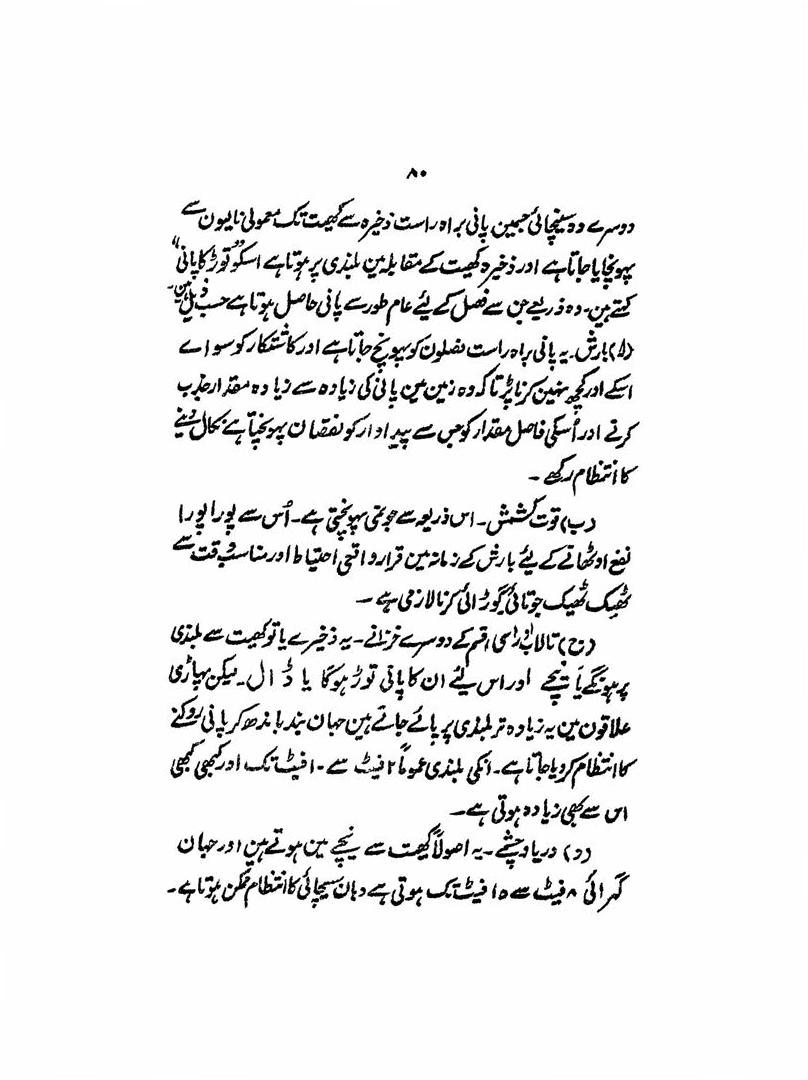 ۸۰
دوسرے وہ سینچائی جسمین پانی براہ راست ذخیرہ سے کھیت تک معمولی نالیون سے
پہونچایا جاتا ہے اور ذخیرہ کھیت کے مقابلہ مین بلندی پر ہوتا ہے اسکو "توڑ کا پانی"
کہتے ہین۔ وہ ذریعے جن سے فصل کے لیئے عام طور سے پانی حاصل ہوتا ہے حسب ذیل ہین۔
(ا) بارش۔ یہ پانی براہ راست فصلون کو پہونچ جاتا ہے اور کاشتکار کو سواے
اسکے اور کچھ نہین کرنا پڑتا کہ وہ زمین مین پانی کی زیادہ سے زیادہ مقدار جذب
کرنے اور اُسکی فاضل مقدار کو جس سے پیداوار کو نقصان پہونچتا ہے نکال دینے
کا انتظام رکھے۔
(ب) قوت کشش۔ اس ذریعہ سے جو نمی پہونچتی ہے۔ اُس سے پورا پورا
نفع اوٹھانے کے لیئے بارش کے زمانہ مین قرار واقعی احتیاط اور مناسب وقت سے
ٹھیک ٹھیک جوتائی گوڑائی کرنا لازمی ہے۔
(ج) تالاب اور اسی قسم کے دوسرے خزانے۔ یہ ذخیرے یا تو کھیت سے بلندی
پر ہونگے یا نیچے اور اس لیئے ان کا پانی توڑ ہوگا یا ڈال۔ لیکن پہاڑی
علاقون مین یہ زیادہ تر بلندی پر پائے جاتے ہین جہان بند باندھ کر پانی روکنے
کا انتظام کر دیا جاتا ہے۔ انکی بلندی عموماً ۲ فیٹ سے ۱۰ فیٹ تک اور کبھی کبھی
اس سے بھی زیادہ ہوتی ہے۔
(د) دریا و چشمے۔ یہ اصولاً کھیت سے نیچے مین ہوتے ہین اور جہان
گہرائی ۸ فیٹ سے ۱۵ فیٹ تک ہوتی ہے وہان سیچائی کا انتظام ممکن ہوتا ہے۔